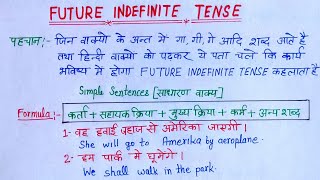 FUTURE INDEFINITE TENSE
पहचान:- जिन वाक्यो के अन्त में गा, गी, गे आदि शब्द आते है
तथा हिन्दी वाक्यो को पढकर ये पता चले कि कार्य
भविष्य में होगा FUTURE INDEFINITE TENSE कहलाता है
Simple Sentences [साधारण वाक्य]
Formula:- कर्ता + सहायक क्रिया + मुख्य क्रिया + कर्म + अन्य शब्द
1- वह हवाई जहाज से अमेरिका जाएगी।
She will go to Amerika by aeroplane.
2- हम पार्क में घूमेंगे।
We shall walk in the park.